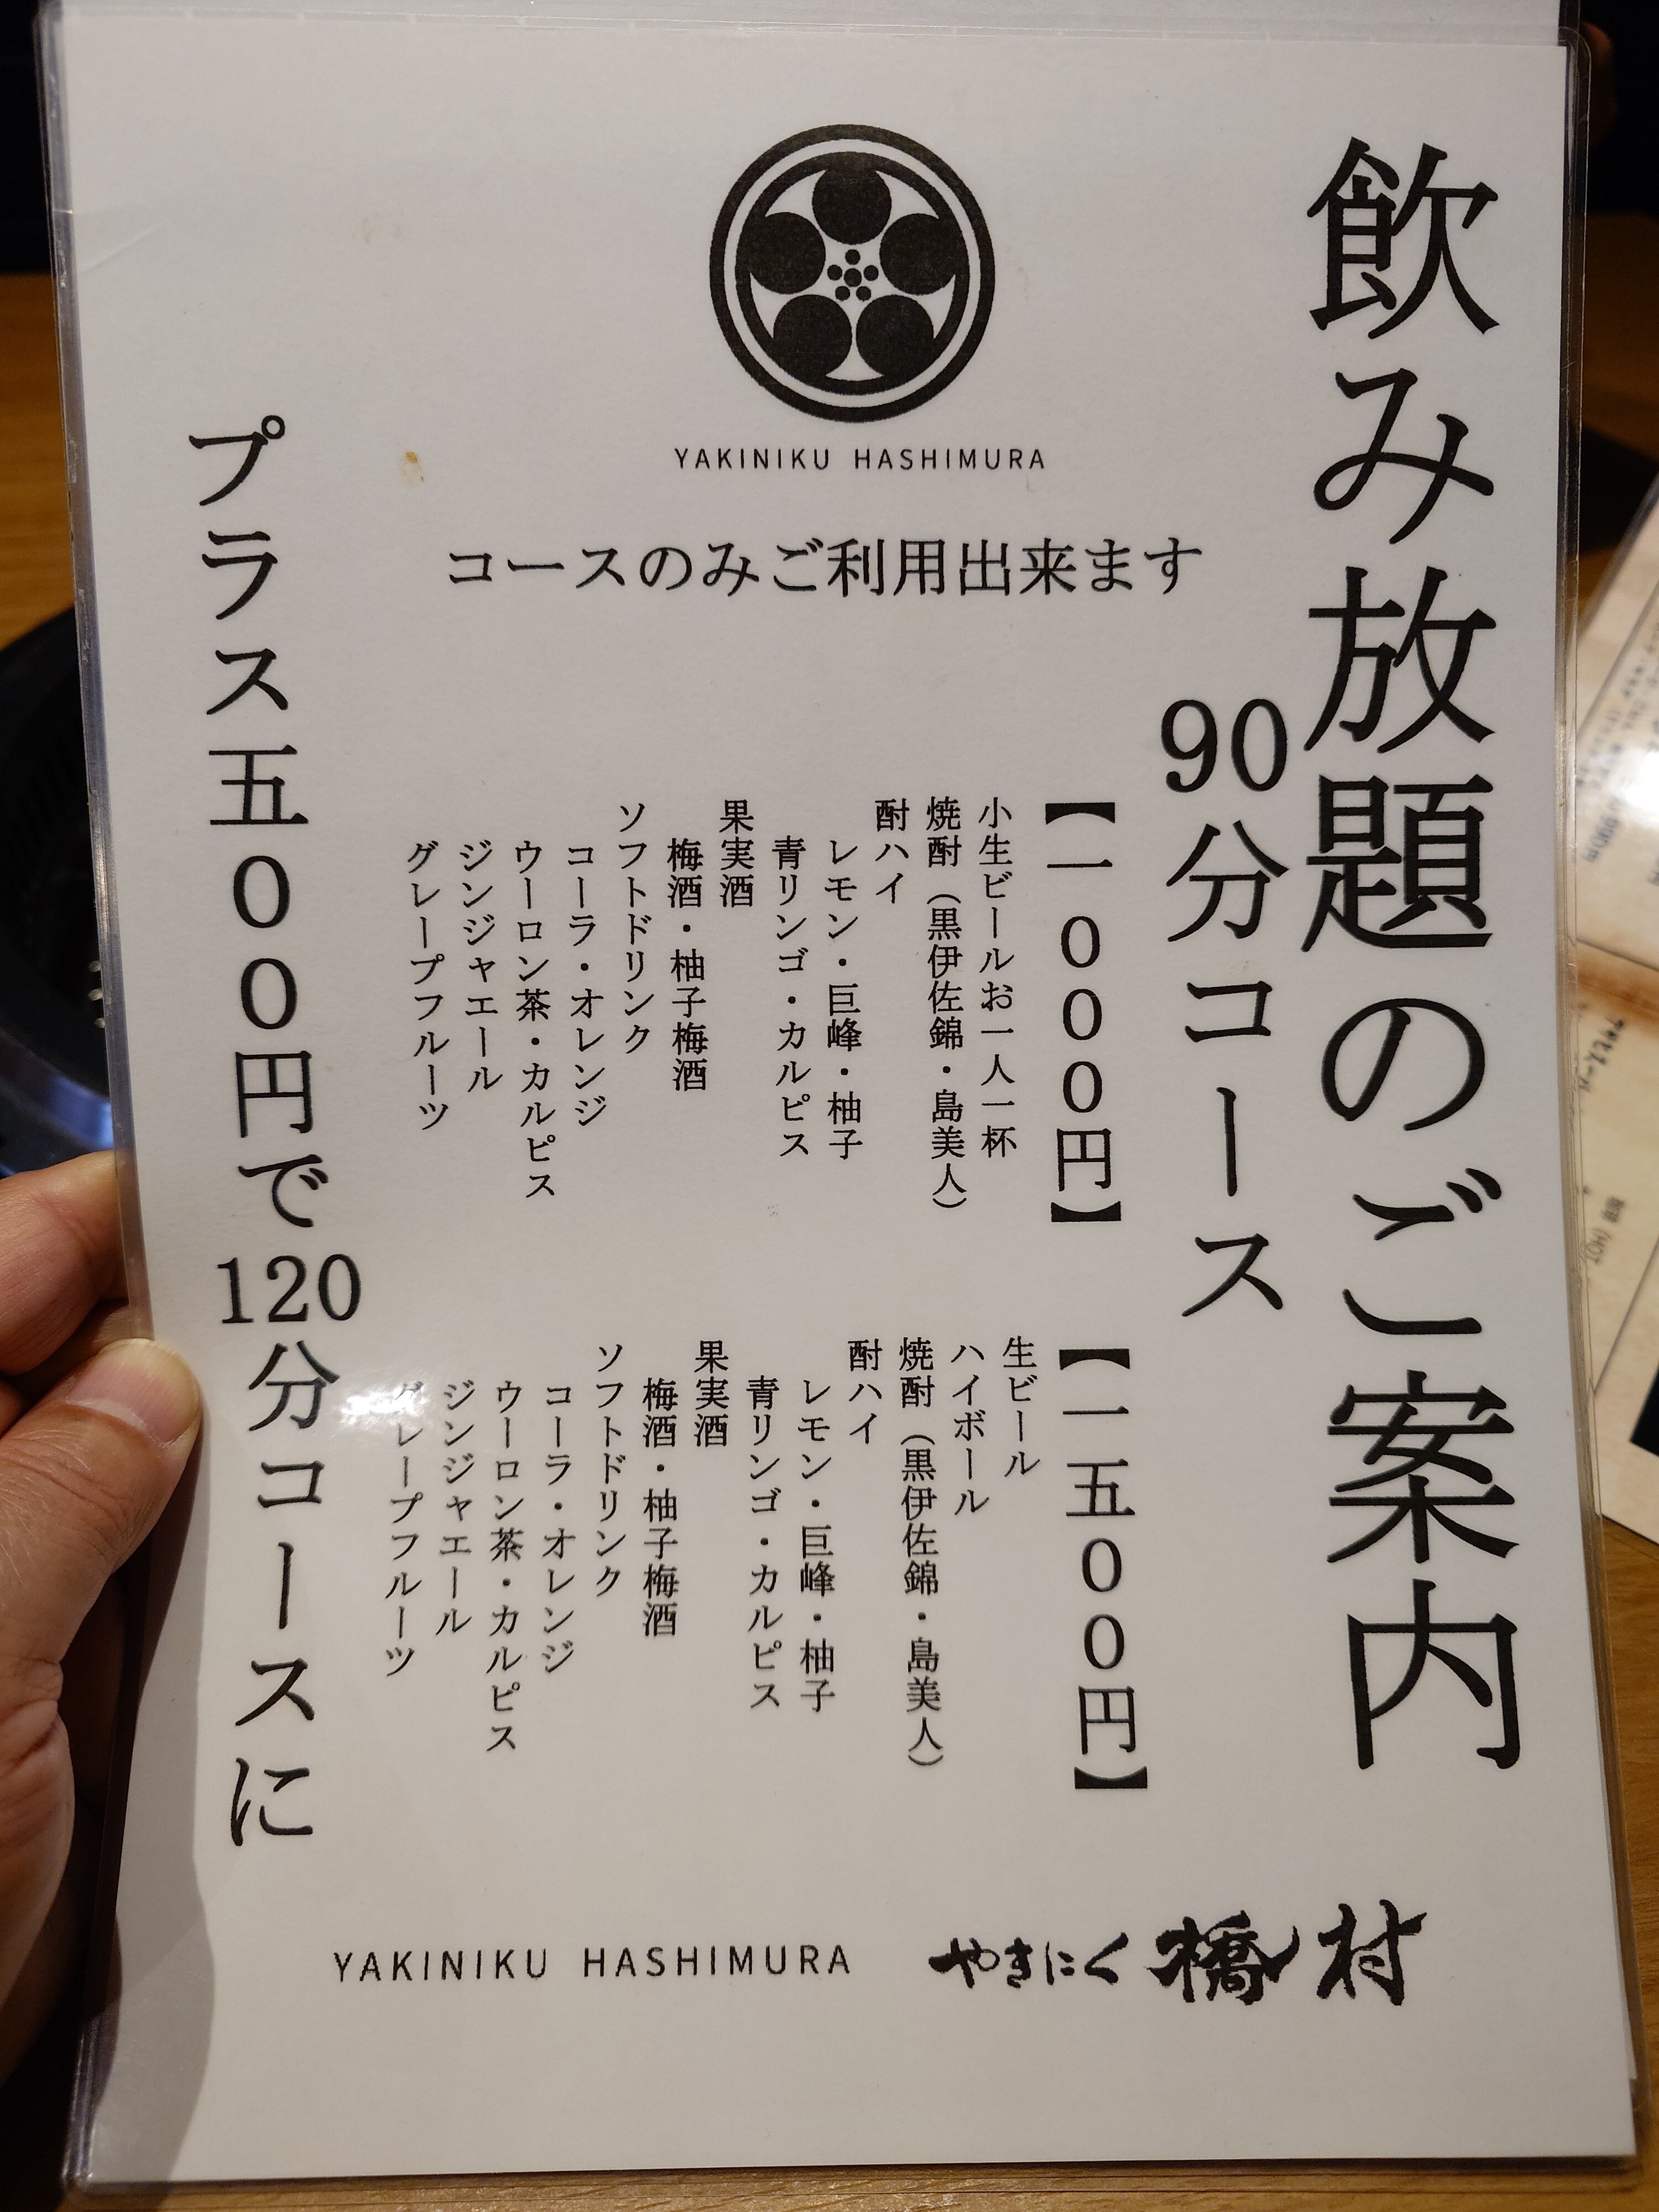 飲み放題のご案内
YAKINIKU HASHIMURA
コースのみご利用出来ます
90分コース
【一０００円】
小生ビールお一人一杯
焼酎（黒伊佐錦・島美人）
酎ハイ
レモン・巨峰・柚子
青リンゴ・カルピス
果実酒
梅酒・柚子梅酒
ソフトドリンク
コーラ・オレンジ
ウーロン茶・カルピス
ジンジャエール
グレープフルーツ
【一五００円】
生ビール
ハイボール
焼酎（黒伊佐錦・島美人）
酎ハイ
レモン・巨峰・柚子
青リンゴ・カルピス
果実酒
梅酒・柚子梅酒
ソフトドリンク
コーラ・オレンジ
ウーロン茶・カルピス
ジンジャエール
グレープフルーツ
プラス五００円で120分コースに
YAKINIKU HASHIMURA
やきにく橋村